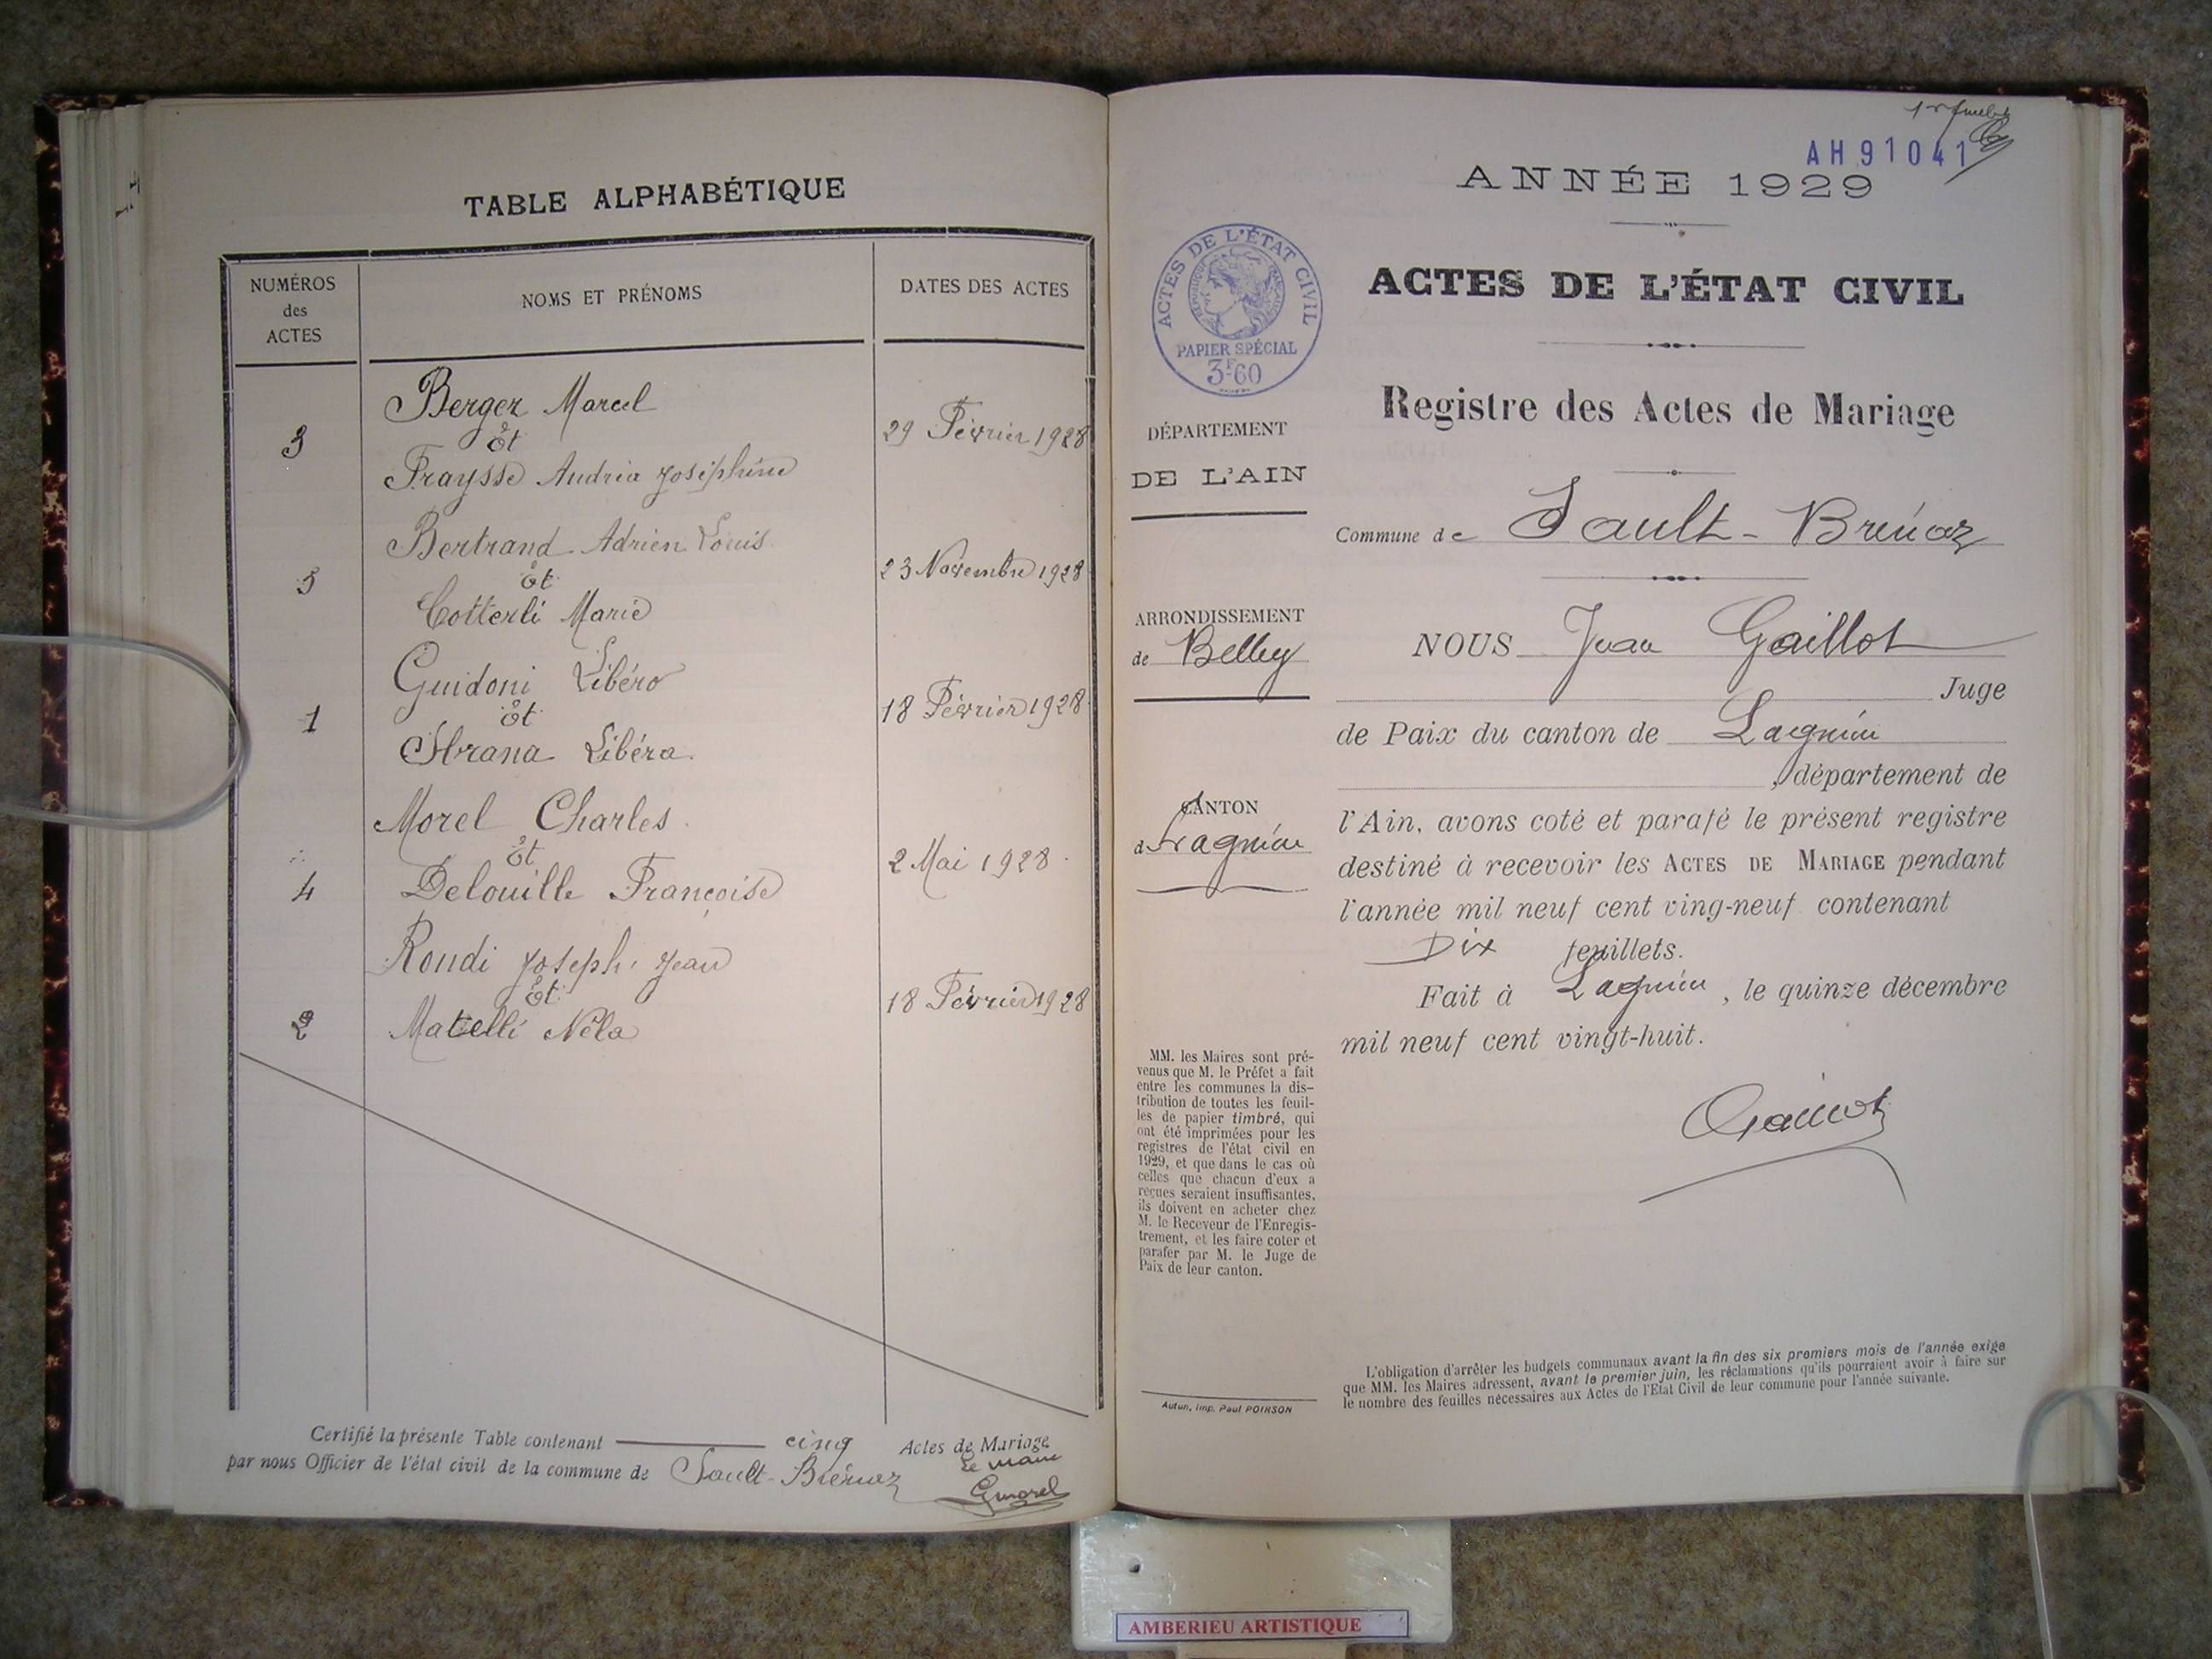 TABLE ALPHABÉTIQUE
NUMÉROS
des
ACTES
NOMS ET PRÉNOMS
DATES DES ACTES
Berger Marcel
3 Et 29 Février 1928
Fraysse Andréa Joséphine
Bertrand Adrien Louis
5 Et 23 Novembre 1928
Cotterli Marie
Guidoni Libéro
1 Et 18 Février 1928
Libéra
Morel Charles
Et 2 Mai 1928
4 Delouille Françoise
Rondi Joseph Jean
Et 18 Février 1928
2 Matelli Néla
Certifié la présente Table contenant cinq Actes de Mariage
par nous Officier de l'état civil de la commune de Sault-Brénaz Le maire
Gmorel
AH91041
ANNÉE 1929
ACTES DE L'ÉTAT CIVIL
RÉPUBLIQUE FRANÇAISE
PAPIER SPÉCIAL
3F60
ACTES DE L'ÉTAT CIVIL
Registre des Actes de Mariage
DÉPARTEMENT
DE L'AIN
Commune de Sault-Brénaz
ARRONDISSEMENT
de Belley
CANTON
de Lagnieu
NOUS Jean Gaillot
Juge
de Paix du canton de Lagnieu
, département de
l'Ain, avons coté et parafé le présent registre
destiné à recevoir les ACTES DE MARIAGE pendant
l'année mil neuf cent ving-neuf contenant
Dix feuillets.
Fait à Lagnieu, le quinze décembre
mil neuf cent vingt-huit.
Gaillot
MM. les Maires sont pré-
venus que M. le Préfet a fait
entre les communes la dis-
tribution de toutes les feuil-
les de papier timbré, qui
ont été imprimées pour les
registres de l'état civil en
1929, et que dans le cas où
celles que chacun d'eux a
reçues seraient insuffisantes,
ils doivent en acheter chez
M. le Receveur de l'Enregis-
trement, et les faire coter et
parafer par M. le Juge de
Paix de leur canton.
Autun, Imp. Paul POIRSON
L'obligation d'arrêter les budgets communaux avant la fin des six premiers mois de l'année exige
que MM. les Maires adressent, avant le premier juin, les réclamations qu'ils pourraient avoir à faire sur
le nombre des feuilles nécessaires aux Actes de l'Etat Civil de leur commune pour l'année suivante.
AMBERIEU ARTISTIQUE